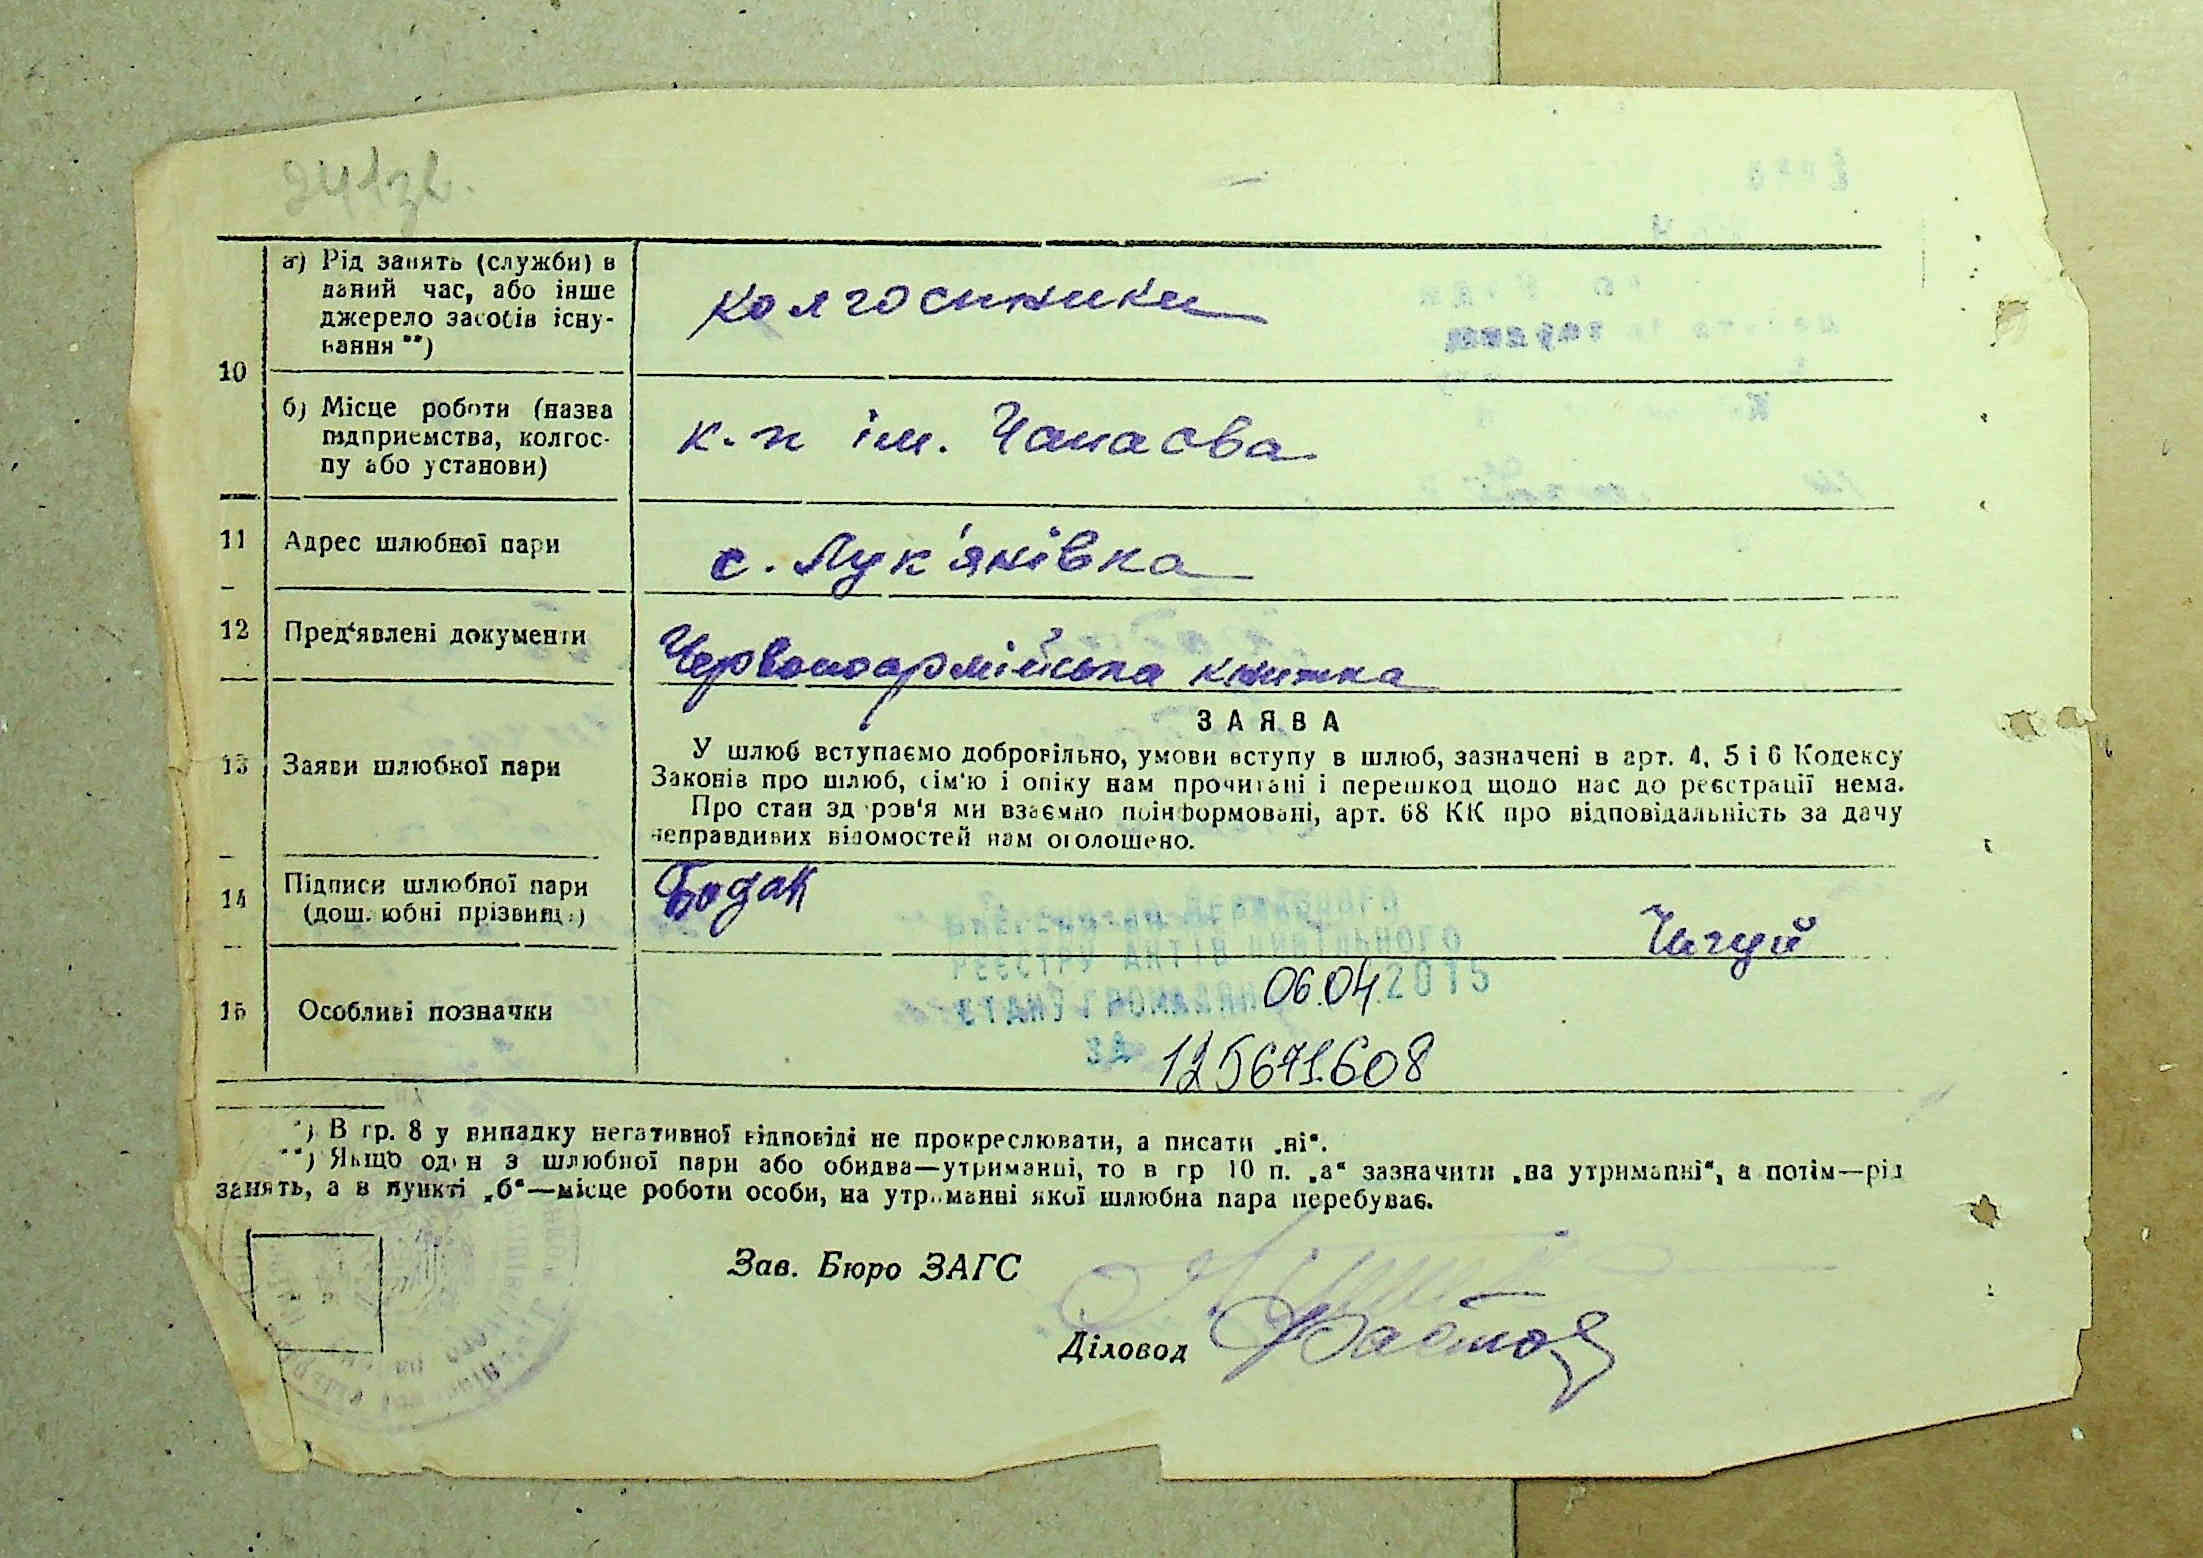 241зв.
10
а) Рід занять (служби) в
даний час, або інше
джерело засобів існу-
вання **)
колгоспники
б) Місце роботи (назва
підприємства, колгос-
пу або установи)
к-п ім. Чапаєва
11 Адрес шлюбної пари
с. Лук'янівка
12 Пред'явлені документи
Червоноармійська книжка
13 Заяви шлюбної пари
ЗАЯВА
У шлюб вступаємо добровільно, умови вступу в шлюб, зазначені в арт. 4, 5 і 6 Кодексу
Законів про шлюб, сім'ю і опіку нам прочитані і перешкод щодо нас до реєстрації нема.
Про стан здоров'я ми взаємно поінформовані, арт. 68 КК про відповідальність за дачу
неправдивих відомостей нам оголошено.
14 Підписи шлюбної пари
(дошлюбні прізвища)
Бодак
Чигуй
15 Особливі позначки
ДЕРЖАВНОГО
РЕЄСТРУ АКТІВ ЦИВІЛЬНОГО
СТАНУ ГРОМАДЯН 06.04.2015
ЗА 125671608
*) В гр. 8 у випадку негативної відповіді не прокреслювати, а писати „ні“.
**) Якщо один з шлюбної пари або обидва—утриманці, то в гр 10 п. „а“ зазначити „на утриманні“, а потім—рід
занять, а в пункті „б“—місце роботи особи, на утриманні якої шлюбна пара перебуває.
Зав. Бюро ЗАГС
Діловод